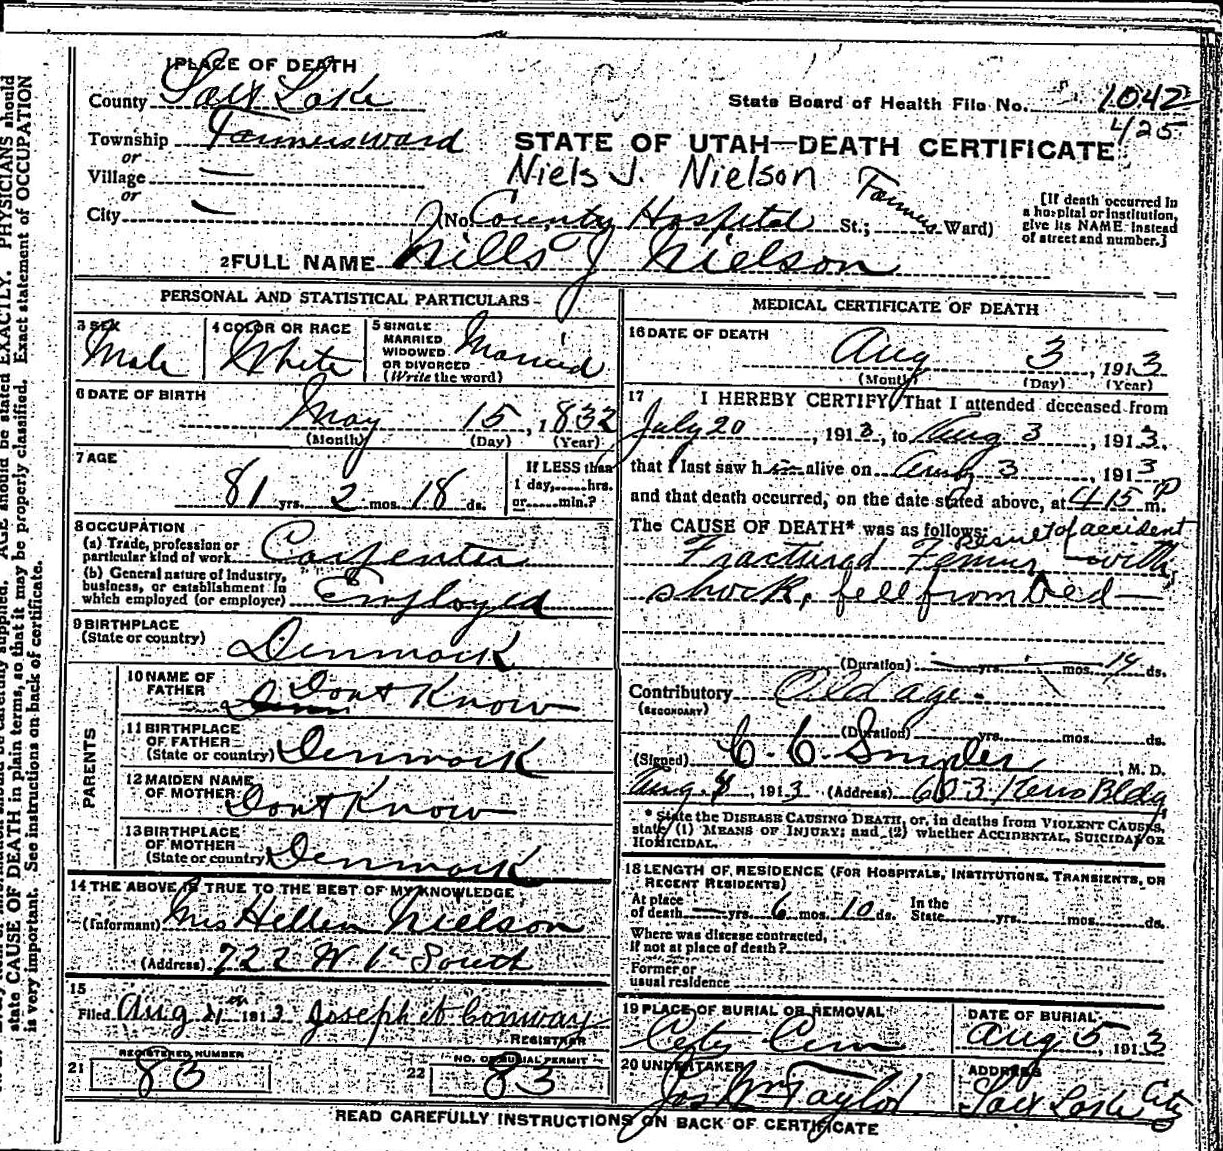 state CAUSE OF DEATH in plain terms, so that it may be properly classified. Exact statement of OCCUPATION
is very important. See instructions on back of certificate.
AGE should be stated EXACTLY. PHYSICIANS should
1 PLACE OF DEATH
County Salt Lake
State Board of Health File No. 1042
4/25
Township Farmers ward
or
Village —
or
City —
STATE OF UTAH—DEATH CERTIFICATE
Niels J. Nielson
(No. County Hospital St.; Farmers Ward)
[If death occurred in
a hospital or institution,
give its NAME instead
of street and number.]
2 FULL NAME Nills J Nielson
PERSONAL AND STATISTICAL PARTICULARS
3 SEX
Male
4 COLOR OR RACE
White
5 SINGLE
MARRIED
WIDOWED
OR DIVORCED
(Write the word)
Married
6 DATE OF BIRTH
May 15, 1832
(Month) (Day) (Year)
7 AGE
81 yrs. 2 mos. 18 ds.
If LESS than
1 day,......hrs.
or......min.?
8 OCCUPATION
(a) Trade, profession or
particular kind of work Carpenter
(b) General nature of Industry,
business, or establishment in
which employed (or employer) Employed
9 BIRTHPLACE
(State or country) Denmark
PARENTS
10 NAME OF
FATHER Dont Know
11 BIRTHPLACE
OF FATHER
(State or country) Denmark
12 MAIDEN NAME
OF MOTHER Dont Know
13 BIRTHPLACE
OF MOTHER
(State or country) Denmark
14 THE ABOVE IS TRUE TO THE BEST OF MY KNOWLEDGE
(Informant) Mrs Hellen Nielson
(Address) 722 W 1st South
15
Filed Aug 4th 1913 Joseph H Conway
REGISTRAR
21 REGISTERED NUMBER
83
22 NO. OF BURIAL PERMIT
83
MEDICAL CERTIFICATE OF DEATH
16 DATE OF DEATH
Aug 3, 1913
(Month) (Day) (Year)
17 I HEREBY CERTIFY, That I attended deceased from
July 20, 1913, to Aug 3, 1913.
that I last saw him alive on Aug 3, 1913
and that death occurred, on the date stated above, at 4 15 P m.
The CAUSE OF DEATH* was as follows:
Result of accident
Fractured Femur with
shock, fell from bed—
(Duration) yrs. mos. 14 ds.
Contributory Old age
(SECONDARY)
(Duration) yrs. mos. ds.
(Signed) C. C. Snyder, M. D.
Aug. 4, 1913 (Address) 603 Kerns Bldg
* State the DISEASE CAUSING DEATH, or, in deaths from VIOLENT CAUSES,
state (1) MEANS OF INJURY; and (2) whether ACCIDENTAL, SUICIDAL OR
HOMICIDAL.
18 LENGTH OF RESIDENCE (FOR HOSPITALS, INSTITUTIONS, TRANSIENTS, OR
RECENT RESIDENTS)
At place
of death — yrs. 6 mos. 10 ds.
In the
State yrs. mos. ds.
Where was disease contracted,
If not at place of death?
Former or
usual residence
19 PLACE OF BURIAL OR REMOVAL
City Cem
DATE OF BURIAL
Aug 5, 1913
20 UNDERTAKER
Jos Wm Taylor
ADDRESS
Salt Lake City
READ CAREFULLY INSTRUCTIONS ON BACK OF CERTIFICATE